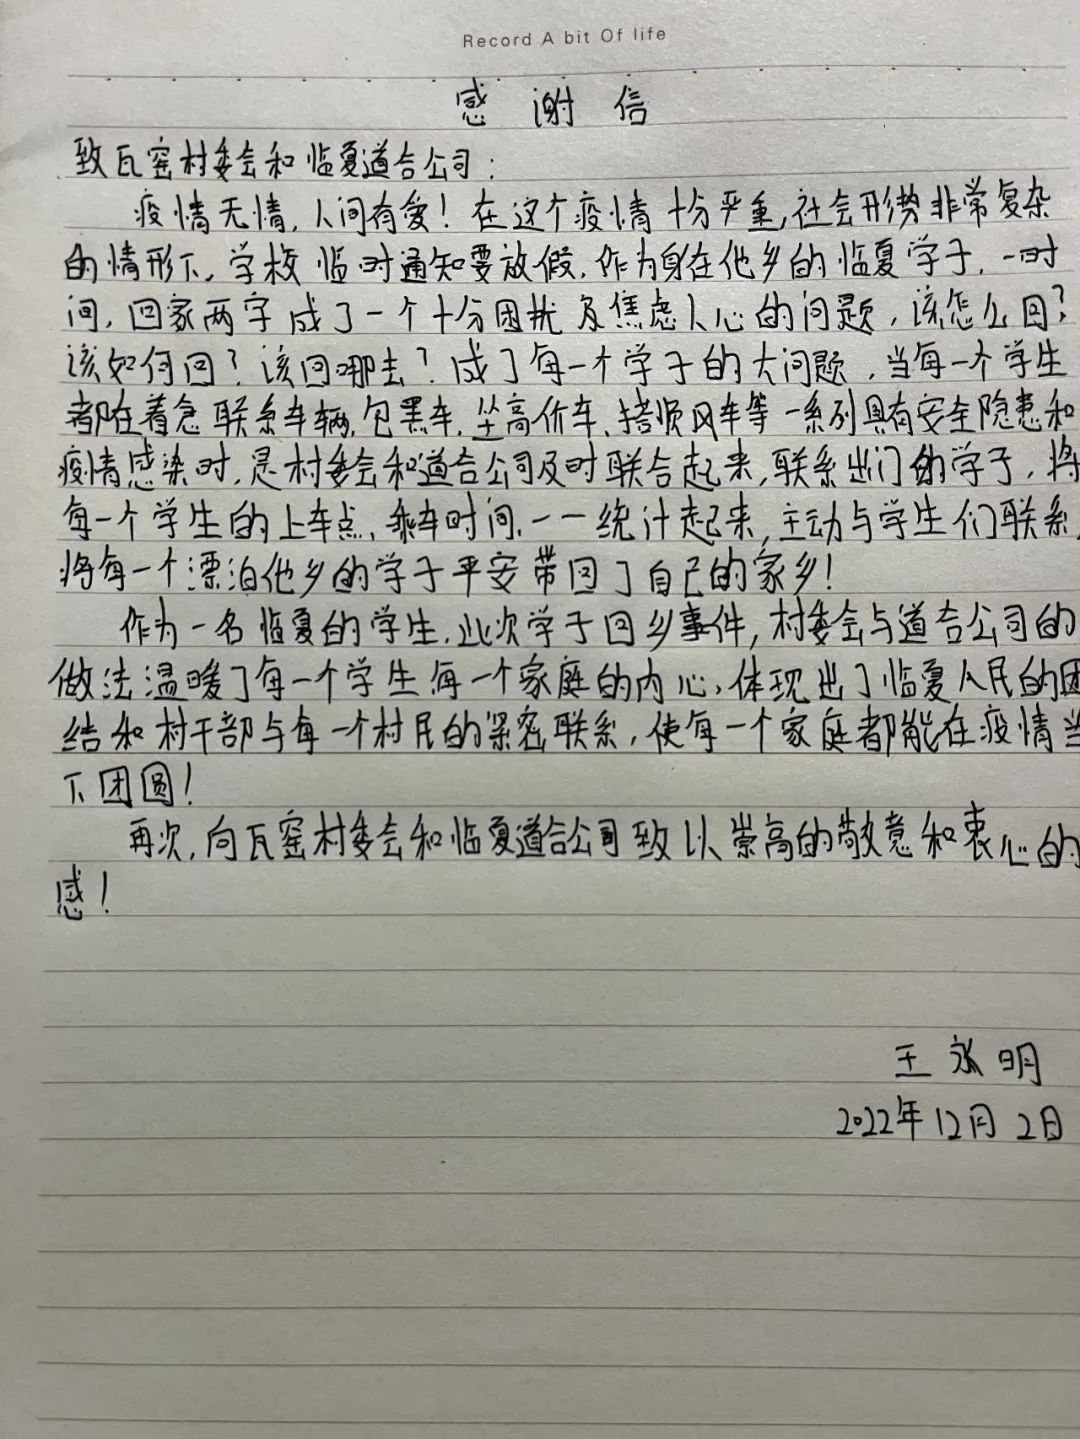 Record A bit Of life
感谢信
致瓦窑村委会和临夏道合公司：
疫情无情，人间有爱！在这个疫情十分严重，社会形势非常复杂
的情形下，学校临时通知要放假，作为身在他乡的临夏学子，一时
间，回家两字成了一个十分困扰及焦虑人心的问题，该怎么回？
该如何回？该回哪去？成了每一个学子的大问题，当每一个学生
都在着急联系车辆，包黑车、坐高价车、搭顺风车等一系列具有安全隐患和
疫情感染时，是村委会和道合公司及时联合起来，联系出门的学子，将
每一个学生的上车点、乘车时间，一一统计起来，主动与学生们联系，
将每一个漂泊他乡的学子平安带回了自己的家乡！
作为一名临夏的学生，此次学子回乡事件，村委会与道合公司的
做法温暖了每一个学生每一个家庭的内心，体现出了临夏人民的团
结和村干部与每一个村民的紧密联系，使每一个家庭都能在疫情当
下团圆！
再次，向瓦窑村委会和临夏道合公司致以崇高的敬意和衷心的
感！
王永明
2022年12月2日